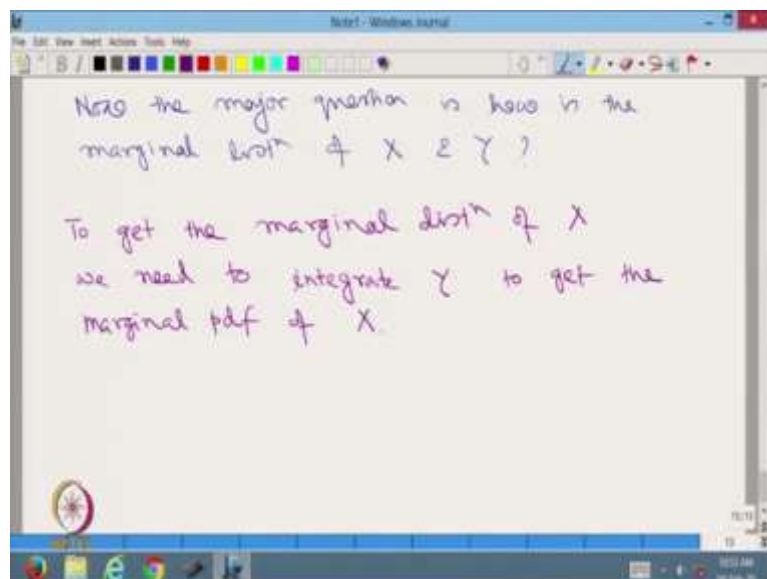 Note1 - Windows Journal
File Edit View Insert Actions Tools Help
Now the major question is how is the
marginal distⁿ of X & Y ?
To get the marginal distⁿ of X
we need to integrate Y to get the
marginal pdf of X.